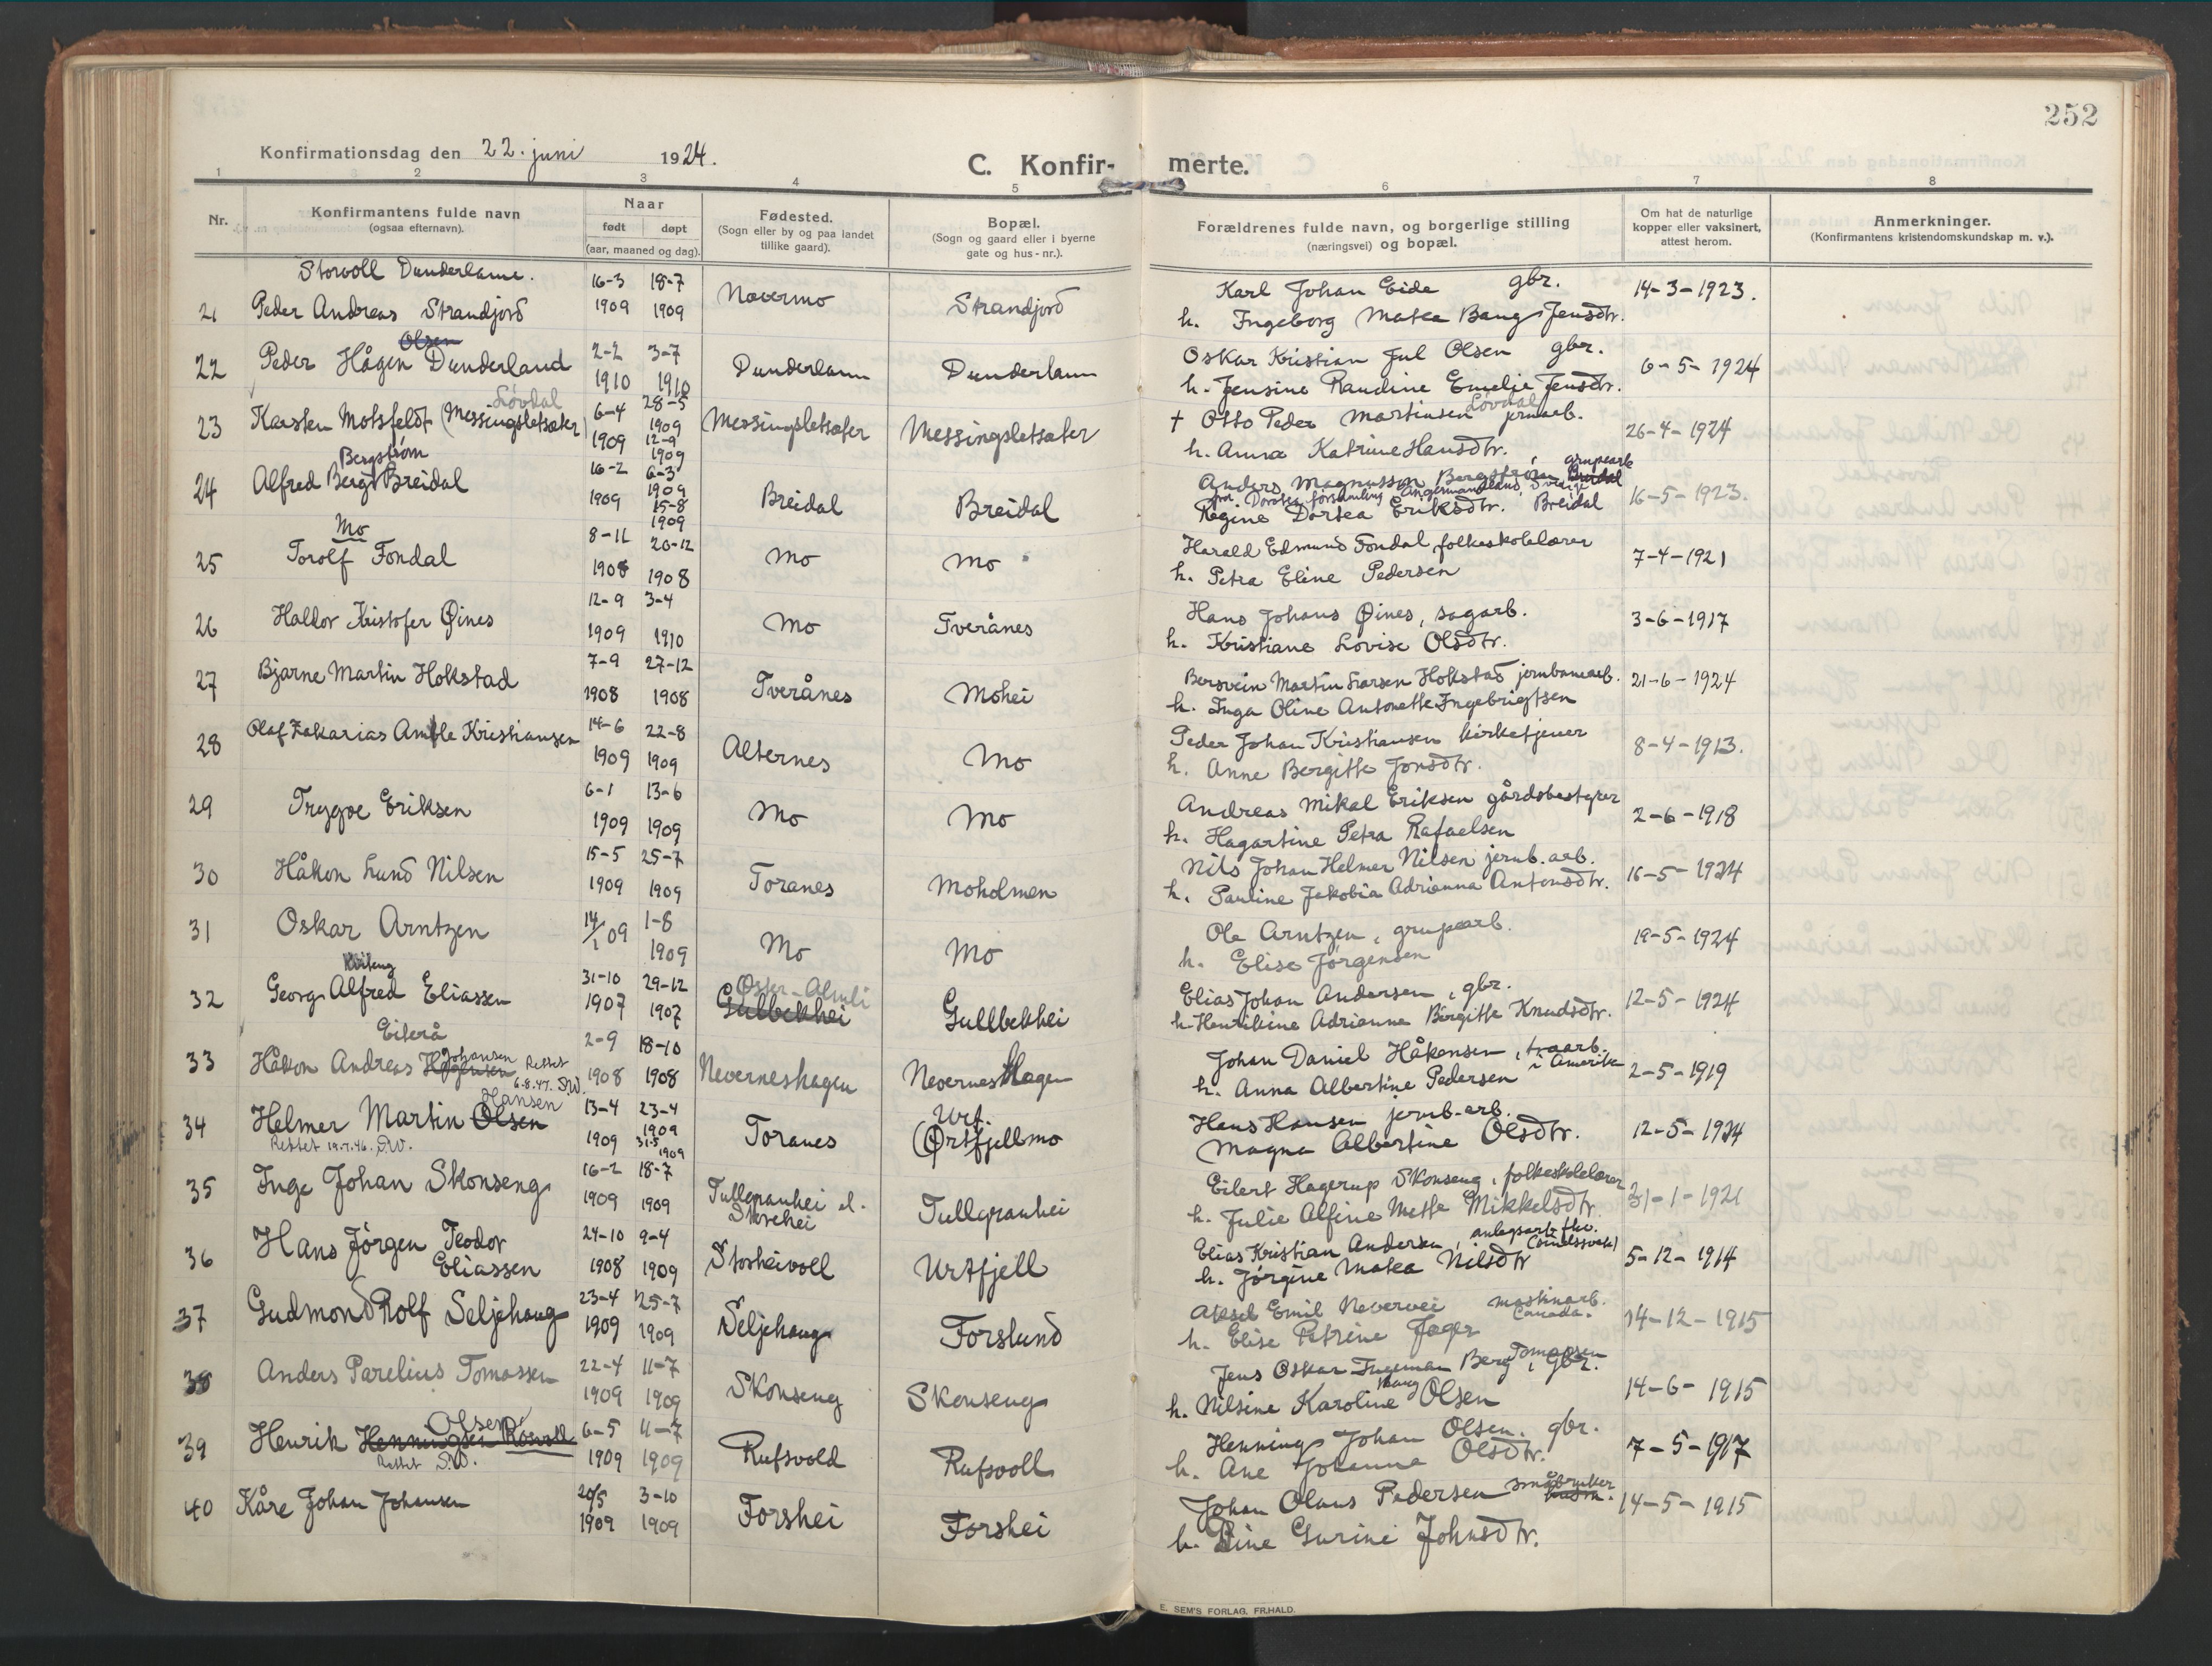 252
Konfirmationsdag den 22. juni 1924.
C. Konfir- merte.
1 2 3 4 5 6 7 8
Nr.
Konfirmantens fulde navn
(ogsaa efternavn).
Naar
født døpt
(aar, maaned og dag).
Fødested.
(Sogn eller by og paa landet
tillike gaard).
Bopæl.
(Sogn og gaard eller i byerne
gate og hus-nr.).
Forældrenes fulde navn, og borgerlige stilling
(næringsvei) og bopæl.
Om hat de naturlige
kopper eller vaksinert,
attest herom.
Anmerkninger.
(Konfirmantens kristendomskundskap m. v.).
Storvoll 16-3 18-7 Karl Johan Eide gbr. 14-3-1923.
21 Peder Andreas Strandjord 1909 1909 Nevermo Strandjord
h. Ingeborg Matea Bang Jensdtr.
Olsen
22 Peder Hågen Dunderland 2-2 3-7 Dunderlann Dunderlann Oskar Kristian Jul Olsen gbr. 6-5-1924
1910 1910 h. Jensine Raudine Emelie Jensdtr.
Løvdal 28-5 Løvdal
23 Karsten Motsfeldt (Messingsletsæter) 6-4 1909 Messingsletsæter Messingsletsæter † Otto Peder Martinsen jernarb. 26-4-1924
1909 12-9 1909 h. Anna Katrine Hansdtr.
Bergstrøm
24 Alfred Berg Breidal 16-2 6-3 1909 Breidal Breidal Anders Magnusson Bergstrøm grupearb 16-5-1923.
1909 15-8 1909 fra Dorotea forsamling Angermanland, Sverige
Regine Dortea Eriksdtr. Breidal
Mo
25 Torolf Fondal 8-11 20-12 Mo Mo Harald Edmund Fondal folkeskolelærer 7-4-1921
1908 1908 h. Petra Eline Pedersen
26 Haldor Kristofer Øines 12-9 3-4 Mo Tverånes Hans Johans Øines, sagarb. 3-6-1917
1909 1910 h. Kristiane Lovise Olsdtr.
27 Bjarne Martin Hokstad 7-9 27-12 Tverånes Mohei Bersvein Martin Larsen Hokstad jernbanearb. 21-6-1924
1908 1908 h. Inga Oline Antonette Ingebrigtsen
28 Olaf Zakarias Amble Kristiansen 14-6 22-8 Alternes Mo Peder Johan Kristiansen kirketjener 8-4-1913.
1909 1909 h. Anne Bergitte Jonsdtr.
29 Trygve Eriksen 6-1 13-6 Mo Mo Andreas Mikal Eriksen gårdsbestyrer 2-6-1918
1909 1909 h. Hagartine Petra Rafaelsen
30 Håkon Lund Nilsen 15-5 25-7 Toranes Moholmen Nils Johan Helmer Nilsen jernb.arb. 16-5-1924
1909 1909 h. Pauline Jakobia Adrianna Antonsdtr.
31 Oskar Arntzen 14/1 09 1-8 Mo Mo Ole Arntzen, grupearb. 19-5-1924
1909 h. Elise Jørgensen
32 Georg Alfred Eliassen 31-10 29-12 Øster-Almli Gullbekkhei Elias Johan Andersen, gbr. 12-5-1924
1907 1907 Gullbekkhei h. Henrikine Adrianna Birgitte Knudsdtr.
Eiterå
33 Håkon Andreas Johansen Rettet 6.8.47. S.W. 2-9 18-10 Neverneshagen Neverneshagen Johan Daniel Håkensen, i Amerika 2-5-1919
1908 1908 h. Anna Albertine Pedersen
Hansen
34 Helmer Martin Olsen 13-4 23-4 1909 Toranes Urt. (Ørtfjellmo Hans Hansen jernb-arb. 12-5-1924
Rettet 19.7.46. S.W. 1909 31-5 1909 Magna Albertine Olsdtr.
35 Inge Johan Skonseng 16-2 18-7 Tullgranhei el. Tullgranhei Eilert Hagerup Skonseng, folkeskolelærer 31-1-1921
1909 1909 h. Julie Alfine Mette Mikkelsdtr.
36 Hans Jörgen Teodor 24-10 9-4 Storheivoll Urtfjell Elias Kristian Andersen, anlegsarb. (sindssvak) 5-12-1914
Eliassen 1908 1909 h. Jörgine Matea Nilsdtr
37 Gudmond Rolf Seljehaug 23-4 25-7 Seljehaug Forslund Aksel Emil Nevervei maskinarb. Canada. 14-12-1915
1909 1909 h. Elise Petrine Jager
38 Anders Parelius Tomassen 22-4 11-7 Skonseng Skonseng Jens Oskar Ingeman Berg Tomassen, gbr. 14-6-1915
1909 1909 h. Nilsine Karoline Bang Olsen
Olsen
39 Henrik Henningsen 6-5 11-7 Rufsvold Rufsvoll Hennings Johan Olsen. gbr. 7-5-1917
Rettet S.W. 1909 1909 h. Ane Johanna Olsdtr.
40 Kåre Johan Johansen 20/5 3-10 Forshei Forshei Johan Olaus Pedersen småbruker 14-5-1915
1909 1909 h. Gurine Johnsdtr.
E. SEM'S FORLAG, FR.HALD.